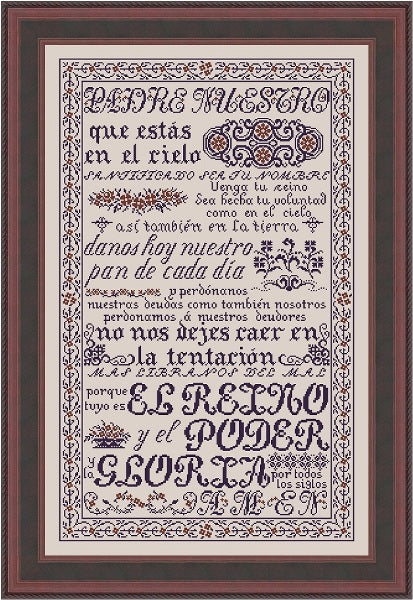 PADRE NUESTRO
que estás
en el cielo
SANTIFICADO SEA TU NOMBRE
Venga tu reino
Sea hecha tu voluntad
como en el cielo
así también en la tierra
danos hoy nuestro
pan de cada día
y perdónanos
nuestras deudas como también nosotros
perdonamos á nuestros deudores
no nos dejes caer en
la tentación
MAS LIBRANOS DEL MAL
porque
tuyo es EL REINO
y el PODER
y la GLORIA por todos
los siglos
AMEN